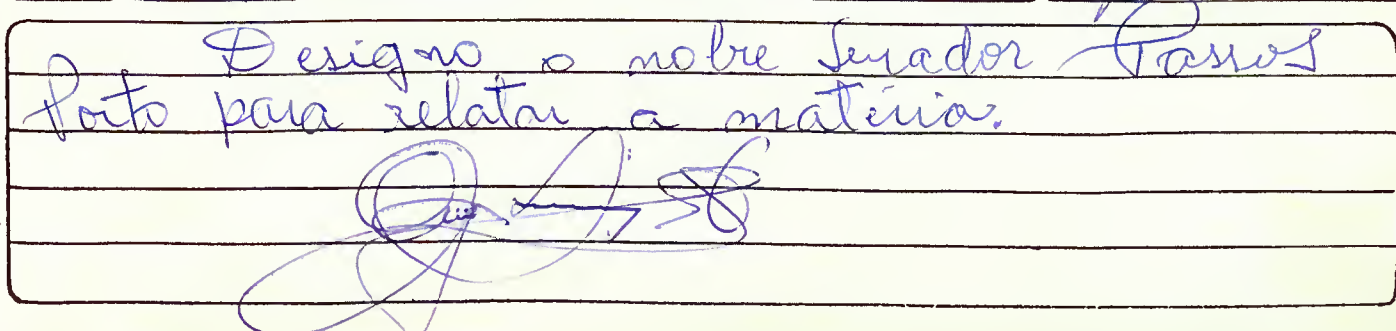 Designo o nobre Senador Passos
Porto para relatar a matéria.